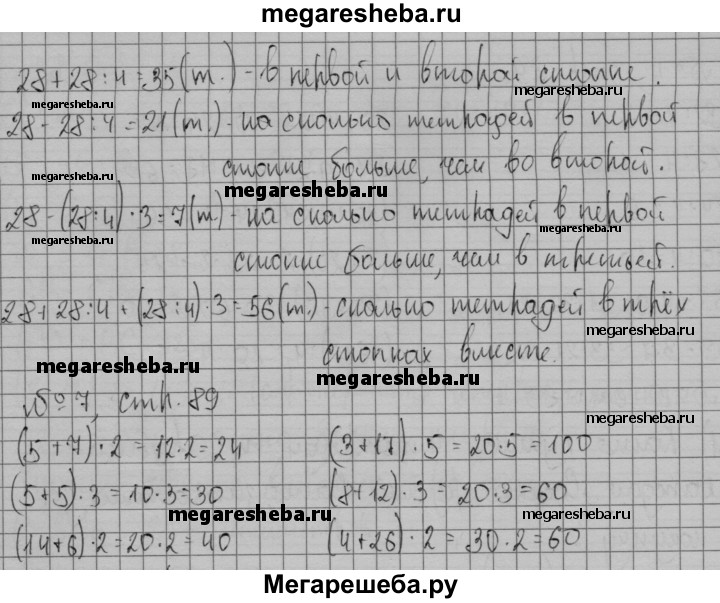 megaresheba.ru
28+28:4=35(т.)-в первой и второй стопке.
megaresheba.ru megaresheba.ru
28-28:4=21(т.)-на сколько тетрадей в первой
megaresheba.ru
стопке больше, чем во второй.
megaresheba.ru megaresheba.ru
28-(28:4)·3=7(т.)-на сколько тетрадей в первой
megaresheba.ru megaresheba.ru
стопке больше, чем в третьей.
28+28:4+(28:4)·3=56(т.)-сколько тетрадей в трёх
megaresheba.ru
стопках вместе.
megaresheba.ru megaresheba.ru
№7, стр. 89
megaresheba.ru
(5+7)·2=12·2=24 (3+17)·5=20·5=100
(5+5)·3=10·3=30 (8+12)·3=20·3=60
megaresheba.ru megaresheba.ru
(14+6)·2=20·2=40 (4+26)·2=30·2=60
Мегарешеба.ру